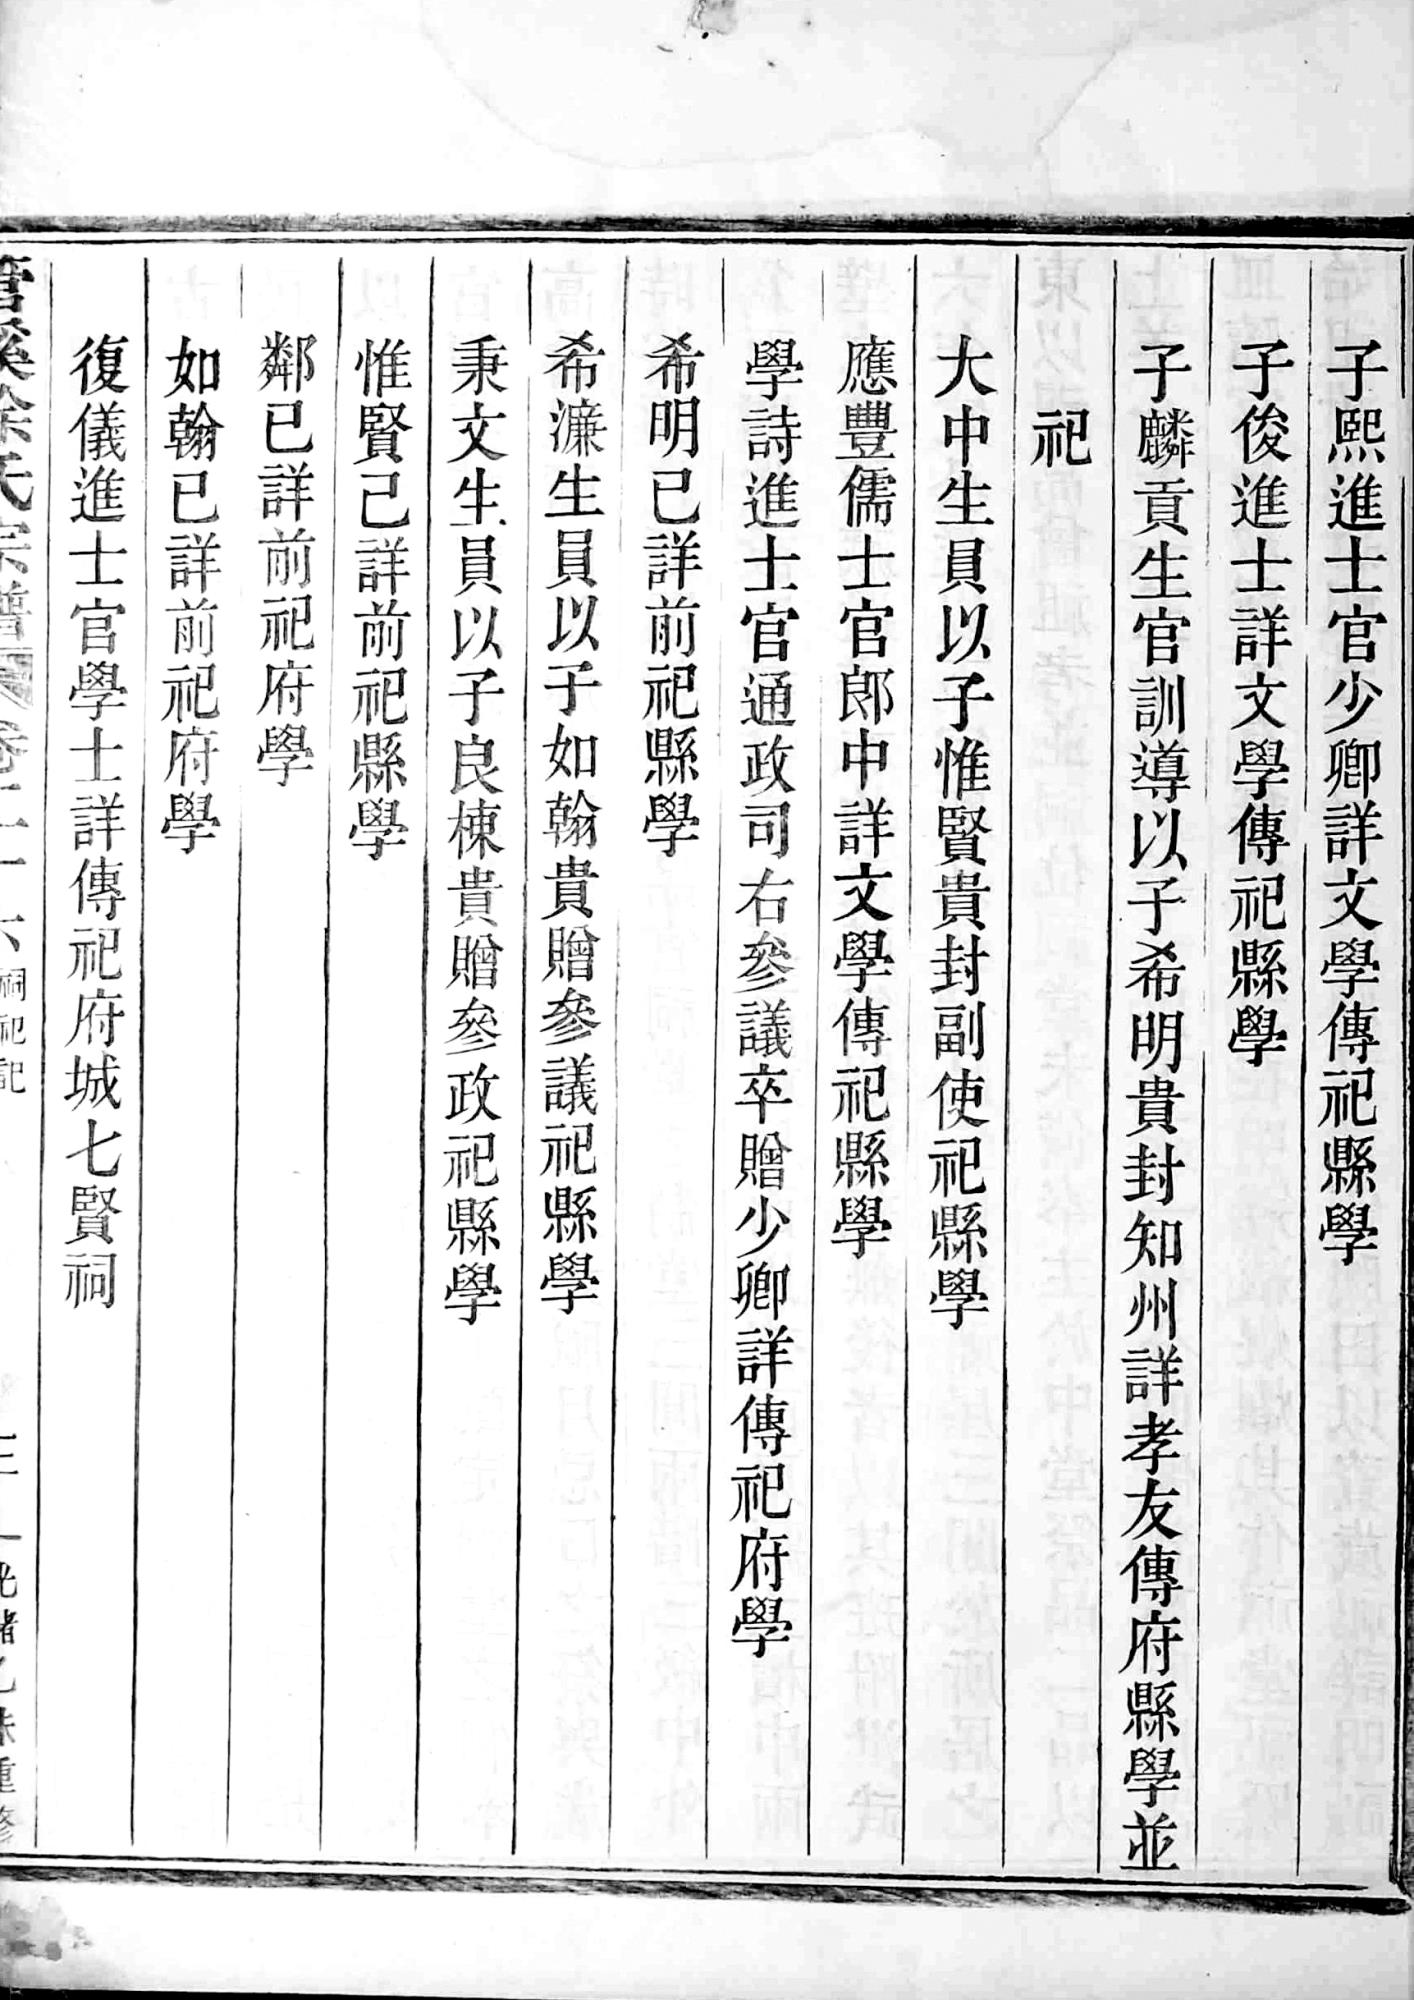 子熙進士官少卿詳文學傳祀縣學
子俊進士詳文學傳祀縣學
子麟貢生官訓導以子希明貴封知州詳孝友傳府縣學並
祀
大中生員以子惟賢貴封副使祀縣學
應豐儒士官郎中詳文學傳祀縣學
學詩進士官通政司右參議卒贈少卿詳傳祀府學
希明已詳前祀縣學
希濂生員以子如翰貴贈參議祀縣學
秉文生員以子良棟貴贈參政祀縣學
惟賢己詳前祀縣學
鄰已詳前祀府學
如翰已詳前祀府學
復儀進士官學士詳傳祀府城七賢祠
管溪徐氏宗譜 卷二十六 祠祀記 光緒乙未重修